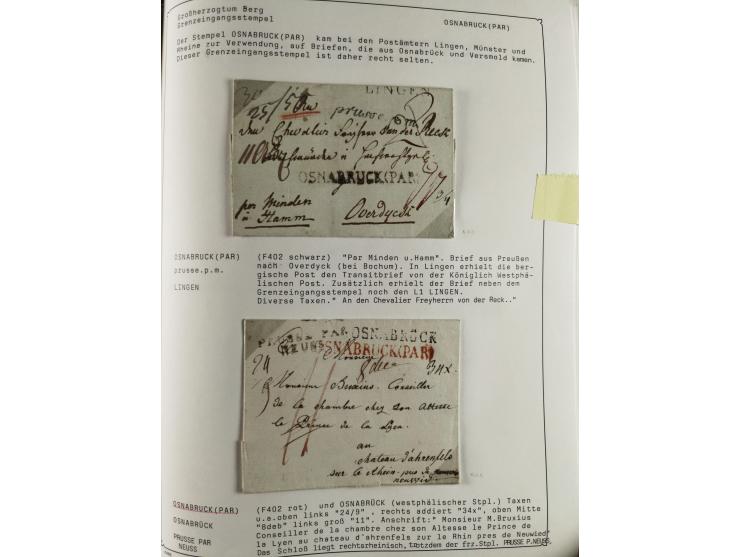 Großherzogtum Berg
Grenzeingangsstempel
OSNABRUCK(PAR)
Der Stempel OSNABRUCK(PAR) kam bei den Postämtern Lingen, Münster und
Rheine zur Verwendung, auf Briefen, die aus Osnabrück und Versmold kamen.
Dieser Grenzeingangsstempel ist daher recht selten.
LINGEN
25/5
prusse
OSNABRUCK(PAR)
par Minden
u Hamm
Overdyck
OSNABRUCK(PAR)
prusse.p.m.
LINGEN
(F402 schwarz) "Par Minden u.Hamm". Brief aus Preußen
nach Overdyck (bei Bochum). In Lingen erhielt die ber-
gische Post den Transitbrief von der Königlich Westphä-
lischen Post. Zusätzlich erhielt der Brief neben dem
Grenzeingangsstempel noch den L1 LINGEN.
Diverse Taxen." An den Chevalier Freyherrn von der Reck.."
PRUSSE PAR OSNABRÜCK
NEUSS OSNABRUCK(PAR)
34x
Monsieur Bruxius Conseiller
de la chambre chez son Altesse
le Prince de la Lyen
au
chateau d'ahrenfels
sur le Rhein pres de
neuwied
OSNABRUCK(PAR)
OSNABRÜCK
PRUSSE PAR
NEUSS
(F402 rot) und OSNABRÜCK (westphälischer Stpl.) Taxen
u.a.oben links "24/9", rechts addiert "34x", oben Mitte
"8deb" links groß "11". Anschrift:" Monsieur M.Bruxius
Conseiller de la chambre chez son Altesse le Prince de
la Lyen au chateau d'ahrenfels sur le Rhin pres de Neuwied"
Das Schloß liegt rechtsrheinisch, trotzdem der frz.Stpl. PRUSSE P.NEUSS.